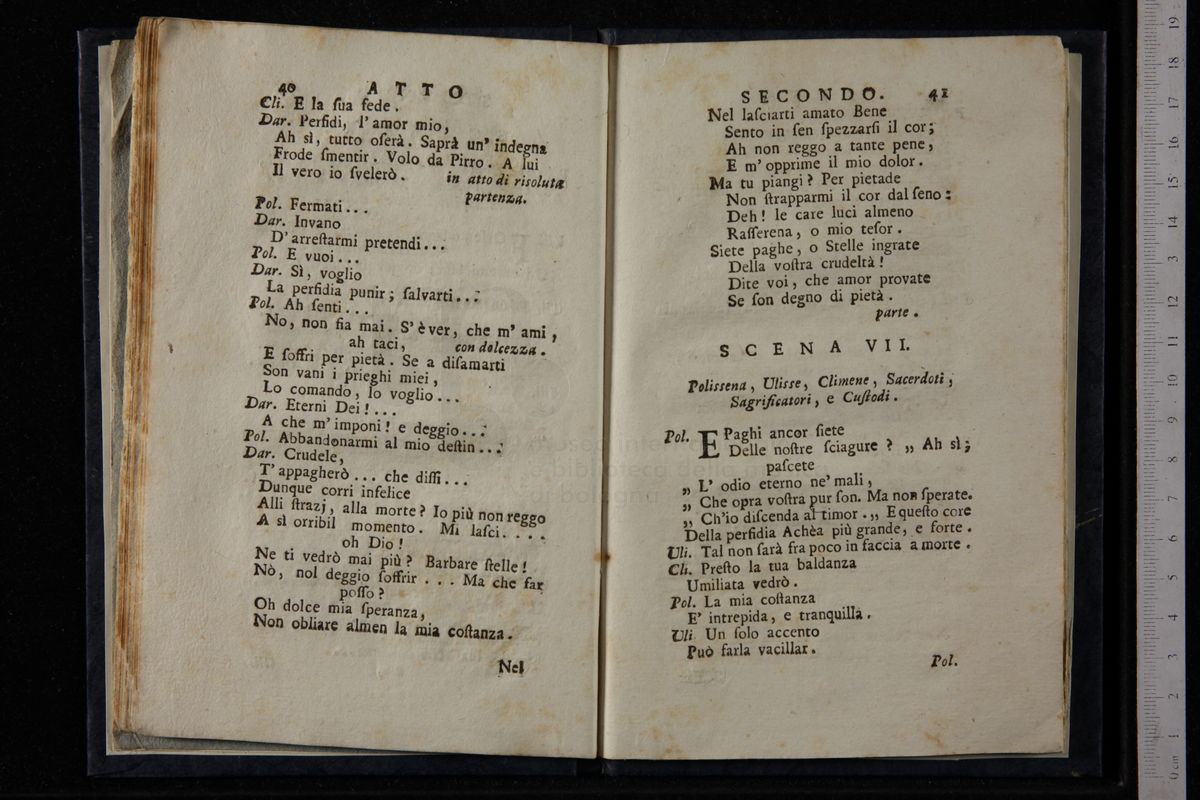 40 ATTO
Cli. E la ſua fede.
Dar. Perfidi, l'amor mio,
Ah sì, tutto oſerà. Saprà un' indegna
Frode ſmentir. Volo da Pirro. A lui
Il vero io ſvelerò. in atto di risoluta
partenza.
Pol. Fermati...
Dar. Invano
D'arreſtarmi pretendi...
Pol. E vuoi...
Dar. Sì, voglio
La perfidia punir; ſalvarti...
Pol. Ah ſenti...
No, non fia mai. S'è ver, che m'ami,
ah taci, con dolcezza.
E ſoffri per pietà. Se a diſamarti
Son vani i prieghi miei,
Lo comando, lo voglio...
Dar. Eterni Dei!...
A che m'imponi! e deggio...
Pol. Abbandonarmi al mio deſtin...
Dar. Crudele,
T'appagherò... che diſſi...
Dunque corri infelice
Alli ſtrazj, alla morte? Io più non reggo
A sì orribil momento. Mi laſci....
oh Dio!
Ne ti vedrò mai più? Barbare ſtelle!
Nò, nol deggio ſoffrir... Ma che far
poſſo?
Oh dolce mia ſperanza,
Non obliare almen la mia coſtanza.
Nel
SECONDO. 41
Nel laſciarti amato Bene
Sento in ſen ſpezzarſi il cor;
Ah non reggo a tante pene,
E m'opprime il mio dolor.
Ma tu piangi? Per pietade
Non ſtrapparmi il cor dal ſeno:
Deh! le care luci almeno
Raſſerena, o mio teſor.
Siete paghe, o Stelle ingrate
Della voſtra crudeltà!
Dite voi, che amor provate
Se ſon degno di pietà.
parte.
SCENA VII.
Polissena, Ulisse, Climene, Sacerdoti,
Sagrificatori, e Cuſtodi.
Pol. E Paghi ancor ſiete
Delle noſtre ſciagure? „ Ah sì;
paſcete
„ L'odio eterno ne' mali,
„ Che opra voſtra pur ſon. Ma non ſperate.
„ Ch'io diſcenda al timor. „ E queſto core
Della perfidia Achèa più grande, e forte.
Uli. Tal non ſarà fra poco in faccia a morte.
Cli. Preſto la tua baldanza
Umiliata vedrò.
Pol. La mia coſtanza
E' intrepida, e tranquilla.
Uli Un ſolo accento
Può farla vacillar.
Pol.